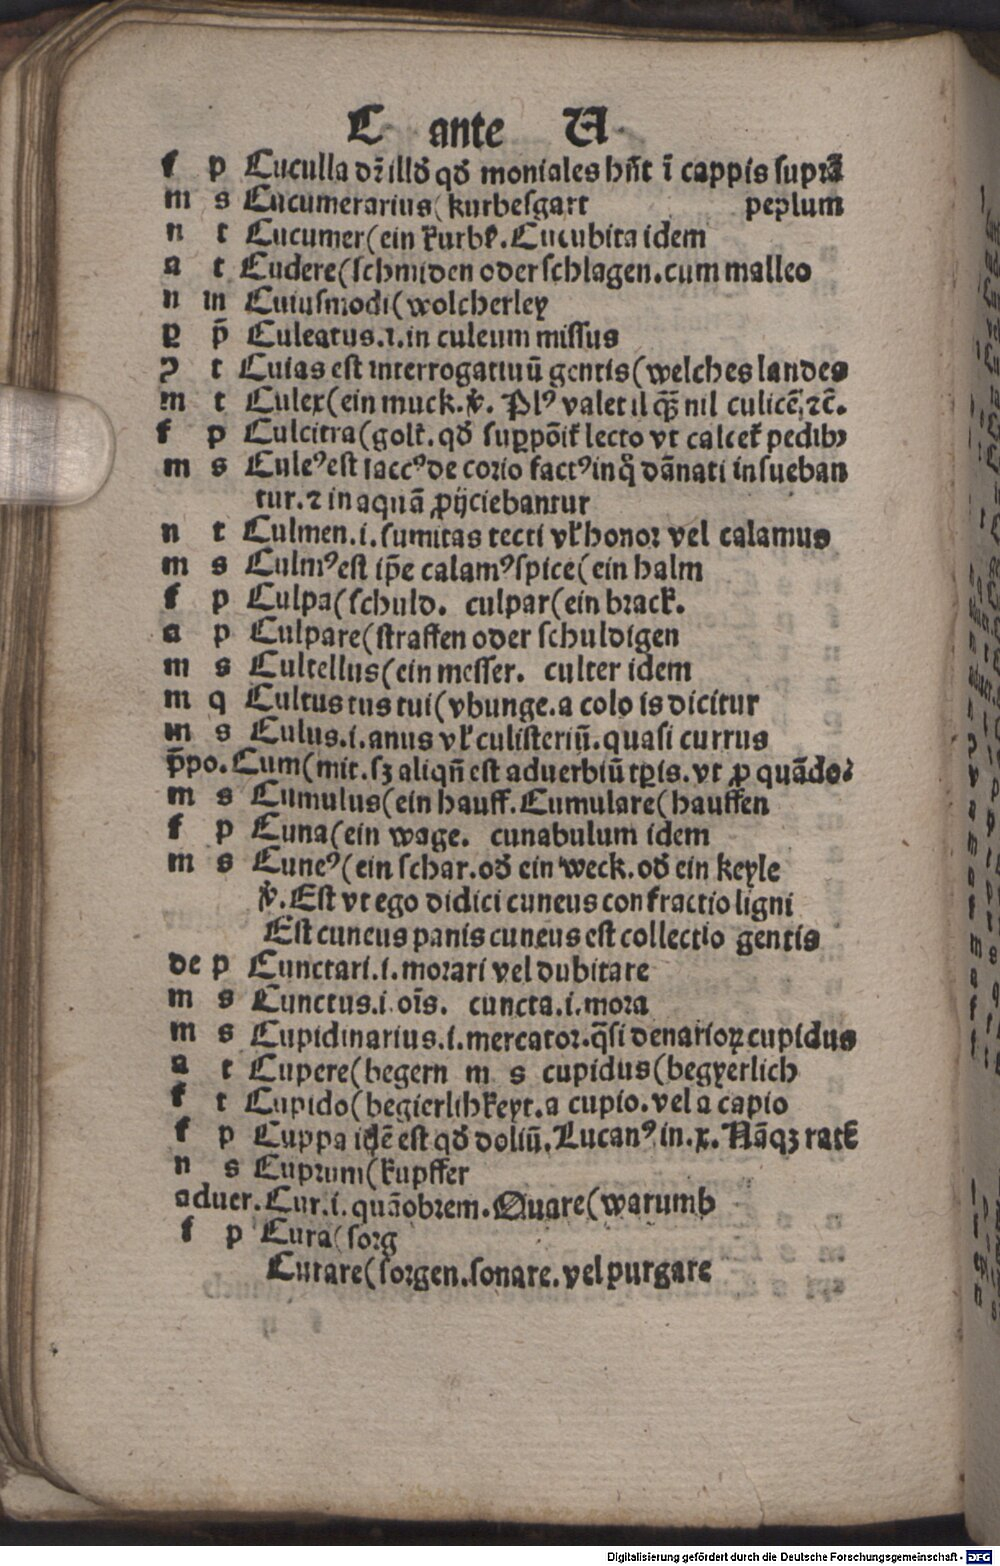 C ante U
f p Cuculla dr̄ illꝺ qꝺ moniales hn̄t ī cappis supra
m s Cucumerarius(kurbeſgart peplum
n t Cucumer(ein kurbſ. Cucubita idem
a t Cudere(ſchmiden oder ſchlagen. cum malleo
n in Cuiuſmodi(wolcherley
p p̄ Culeatus .i. in culeum miſſus
ꝓ t Cuias eſt interrogatiuū gentis(welches landes
m t Culex(ein muck. v̊. Plꝰ valet il qƺ nil culicē, ⁊c̄.
f p Culcitra(golt. qꝺ suppōit̉ lecto vt calcet̉ pedibꝫ
m s Culeꝰ eſt ſaccꝰ de corio factꝰ in q̊ dānati inſueban
tur. ⁊ in aquā ꝓijciebantur
n t Culmen .i. ſumitas tecti vl̉ honoꝛ vel calamus
m s Culmꝰ eſt ip̄e calamꝰ ſpice(ein halm
f p Culpa(ſchuld. culpar(ein brack.
a p Culpare(ſtraffen oder ſchuldigen
m s Cultellus(ein meſſer. culter idem
m q Cultus tus tui(vbunge. a colo is dicitur
m s Culus .i. anus vl̉ culiſteriū. quaſi currus
p̄po. Cum(mit. ſꝫ aliqn̄ eſt aduerbiū tp̄is. vt ꝓ quādo
m s Cumulus(ein hauff. Cumulare(hauffen
f p Cuna(ein wage. cunabulum idem
m s Cuneꝰ(ein ſchar. oꝺ ein weck. oꝺ ein keyle
v̊. Eſt vt ego didici cuneus confractio ligni
Eſt cuneus panis cuneus eſt collectio gentis
de p Cunctari .i. moꝛari vel dubitare
m s Cunctus .i. oīs. cuncta .i. moꝛa
m s Cupidinarius .i. mercatoꝛ. q̄ſi denarioꝝ cupidus
a t Cupere(begern m s cupidus(begyerlich
f t Cupido(begierlihkeyt. a cupio. vel a capio
f p Cuppa idē eſt qꝺ doliū. Lucanꝰ in .x. Nāqꝫ rate
n s Cuprum(kupffer
aduer. Cur .i. quāobrem. Quare(warumb
f p Cura(ſoꝛg
Curare(ſoꝛgen. ſonare. vel purgare
Digitalisierung gefördert durch die Deutsche Forschungsgemeinschaft - DFG